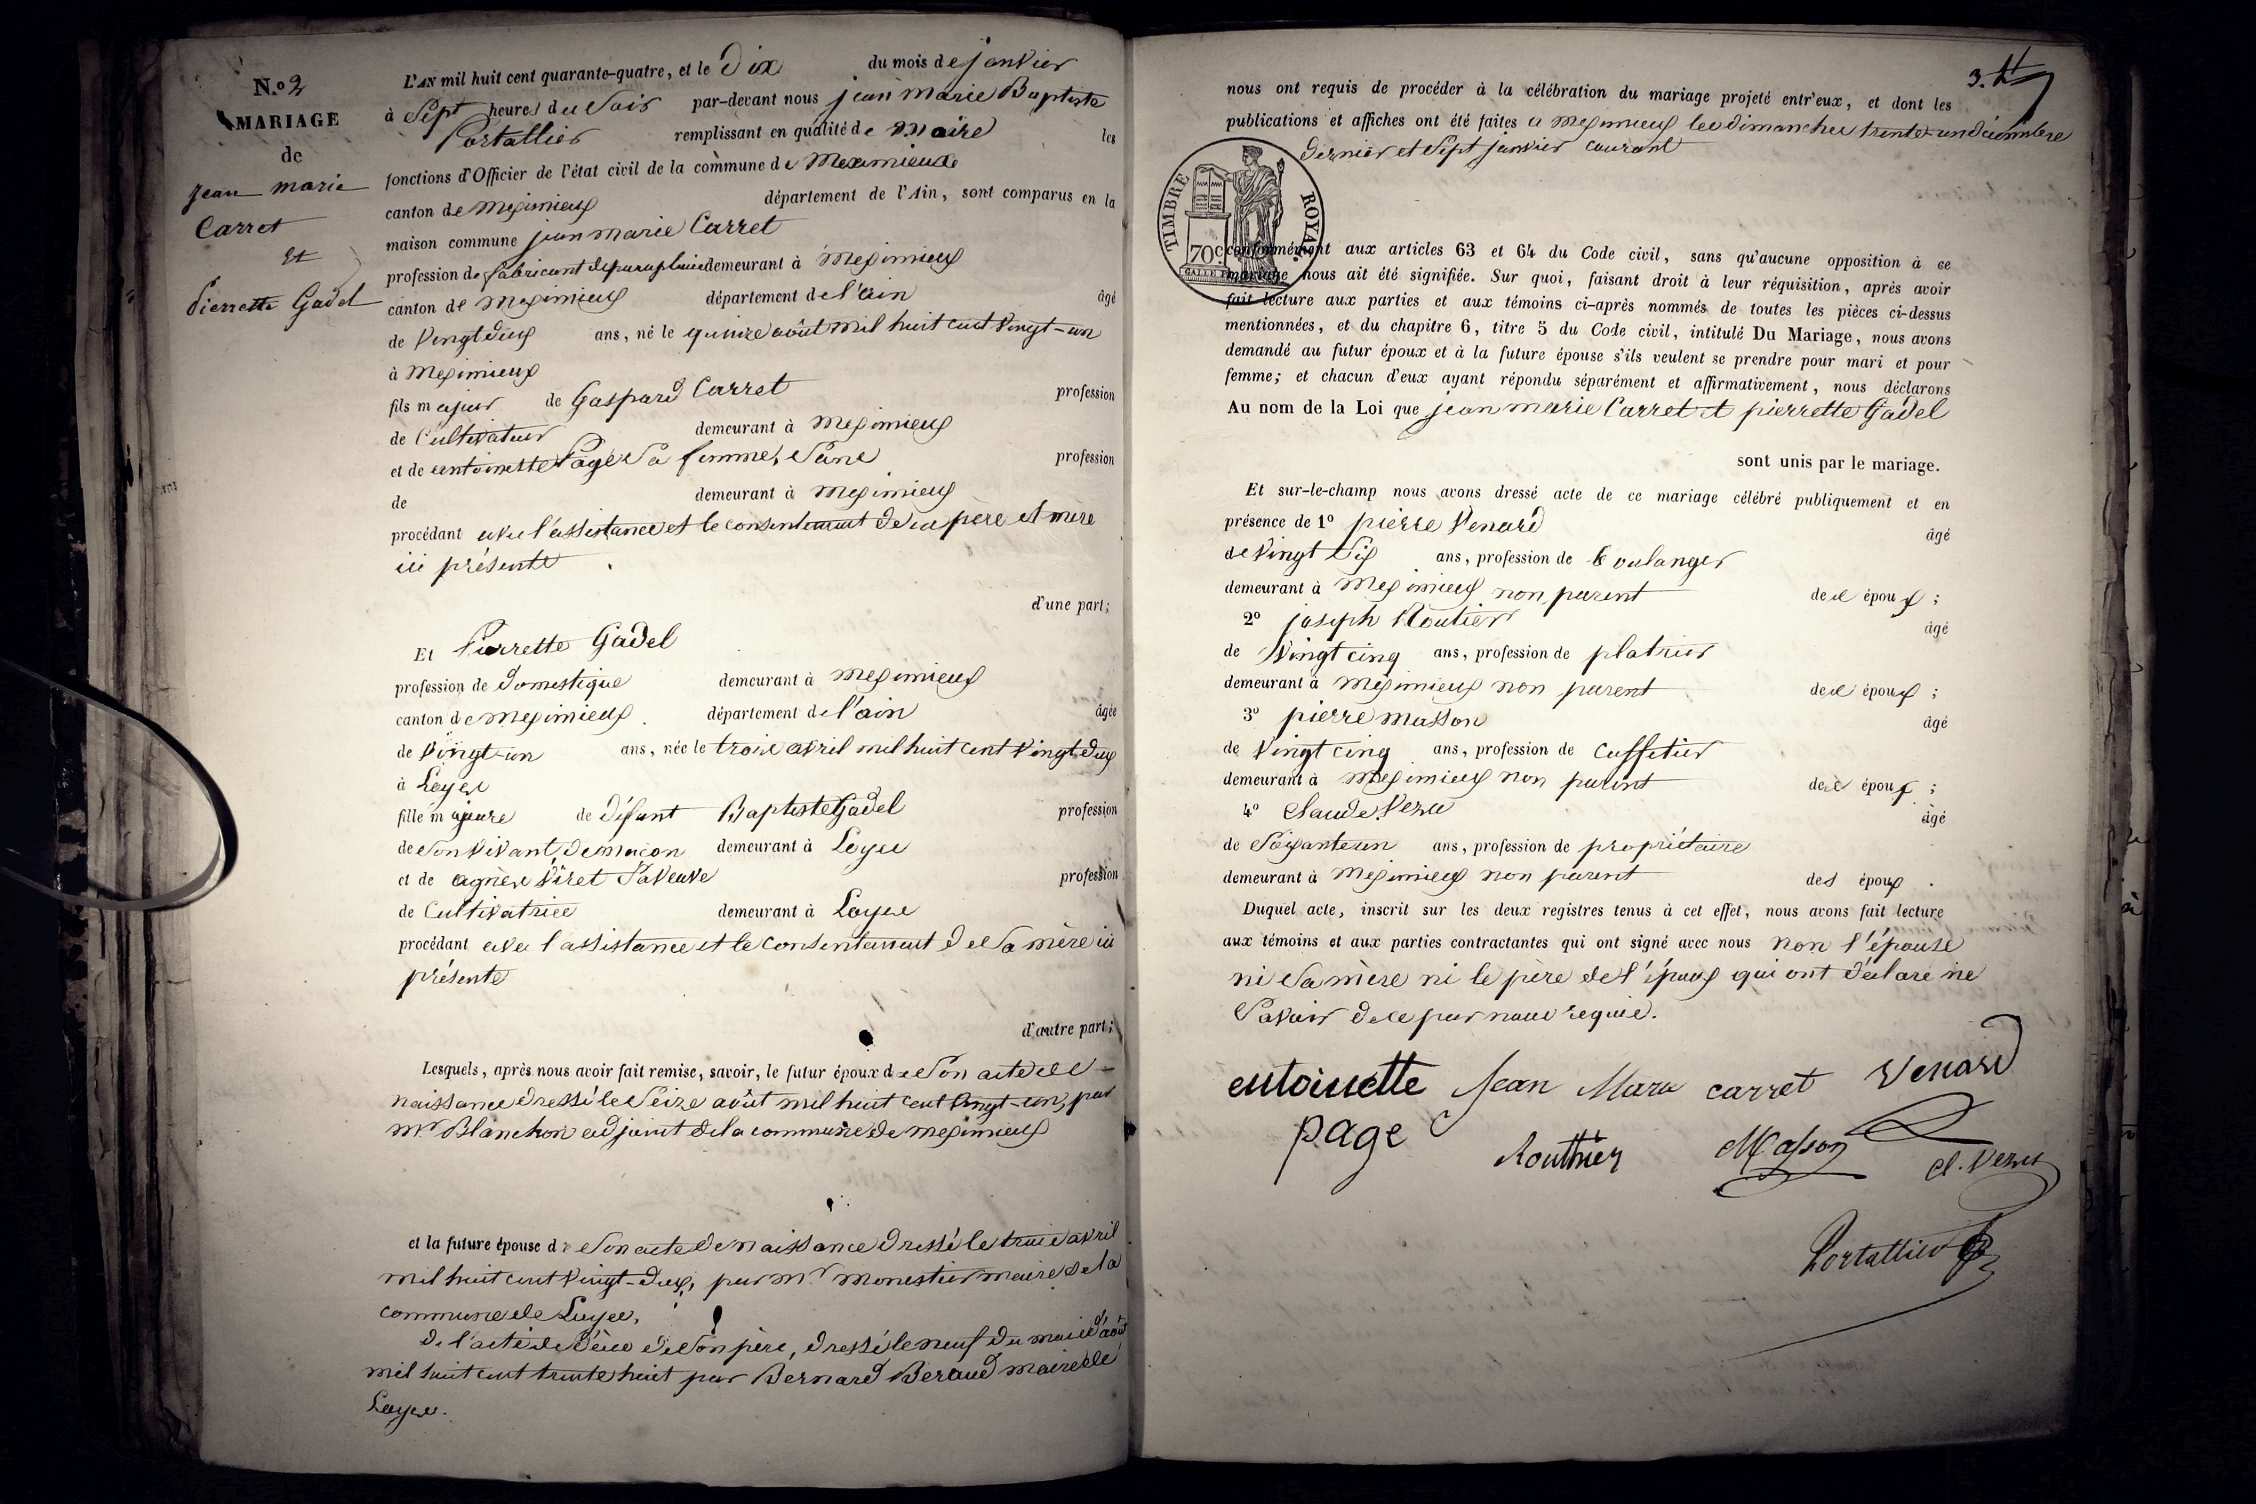 N.o 2
MARIAGE
de
jean marie
Carret
Et
Pierrette Gadel
L'AN mil huit cent quarante-quatre, et le Dix du mois de janvier
à Sept heures du Soir par-devant nous jean marie Baptiste
Portallier remplissant en qualité de maire les
fonctions d'Officier de l'état civil de la commune de Meximieux
canton de meximieux département de l'Ain, sont comparus en la
maison commune jean marie Carret
profession de fabricant de parapluie demeurant à Meximieux
canton de meximieux département de l'ain âgé
de vingt deux ans, né le quinze août mil huit cent vingt-un
à Meximieux
fils majeur de Gaspard Carret profession
de Cultivateur demeurant à Meximieux
et de antoinette Page Sa femme, Sans profession
de demeurant à meximieux
procédant avec l'assistance et le consentement de ses père et mère
ici présents
d'une part;
Et Pierrette Gadel
profession de Domestique demeurant à meximieux
canton de meximieux département de l'ain âgée
de vingt-un ans, née le trois avril mil huit cent vingt deux
à Loyes
fille majeure de défunt Baptiste Gadel profession
de Son vivant, de maçon demeurant à Loyes
et de agnès Viret Sa veuve profession
de Cultivatrice demeurant à Loyes
procédant avec l'assistance et le consentement de Sa mère ici
présente
d'autre part;
Lesquels, après nous avoir fait remise, savoir, le futur époux de Son acte de
naissance dressé le Seize août mil huit cent vingt-un, par
Mr Blanchon adjoint de la commune de meximieux
et la future épouse de Son acte de naissance dressé le trois avril
mil huit cent vingt-deux, par Mr monestier maire de la
commune de Loyes,
De l'acte de décès de Son père, dressé le neuf du mois d'août
mil huit cent trente huit par Bernard Beraud maire de
Loyes.
3.
nous ont requis de procéder à la célébration du mariage projeté entr'eux, et dont les
publications et affiches ont été faites à meximieux les dimanches trente-un décembre
dernier et Sept janvier courant
TIMBRE ROYAL
70 c.
conformément aux articles 63 et 64 du Code civil, sans qu'aucune opposition à ce
mariage nous ait été signifiée. Sur quoi, faisant droit à leur réquisition, après avoir
fait lecture aux parties et aux témoins ci-après nommés de toutes les pièces ci-dessus
mentionnées, et du chapitre 6, titre 5 du Code civil, intitulé Du Mariage, nous avons
demandé au futur époux et à la future épouse s'ils veulent se prendre pour mari et pour
femme; et chacun d'eux ayant répondu séparément et affirmativement, nous déclarons
Au nom de la Loi que jean marie Carret et pierrette Gadel
sont unis par le mariage.
Et sur-le-champ nous avons dressé acte de ce mariage célébré publiquement et en
présence de 1o pierre Venard âgé
de vingt Six ans, profession de Boulanger
demeurant à Meximieux non parent des époux;
2o joseph Routier âgé
de vingt cinq ans, profession de platrier
demeurant à Meximieux non parent des époux;
3o pierre masson âgé
de vingt cinq ans, profession de caffetier
demeurant à Meximieux non parent des époux;
4o Claude Vezu âgé
de Soixante un ans, profession de propriétaire
demeurant à Meximieux non parent des époux.
Duquel acte, inscrit sur les deux registres tenus à cet effet, nous avons fait lecture
aux témoins et aux parties contractantes qui ont signé avec nous non l'épouse
ni Sa mère ni le père de l'époux qui ont déclaré ne
Savoir de ce par nous requis.
entoinette Jean Mara carret Venard
page Routhier Masson cl. Vezu
Portallier